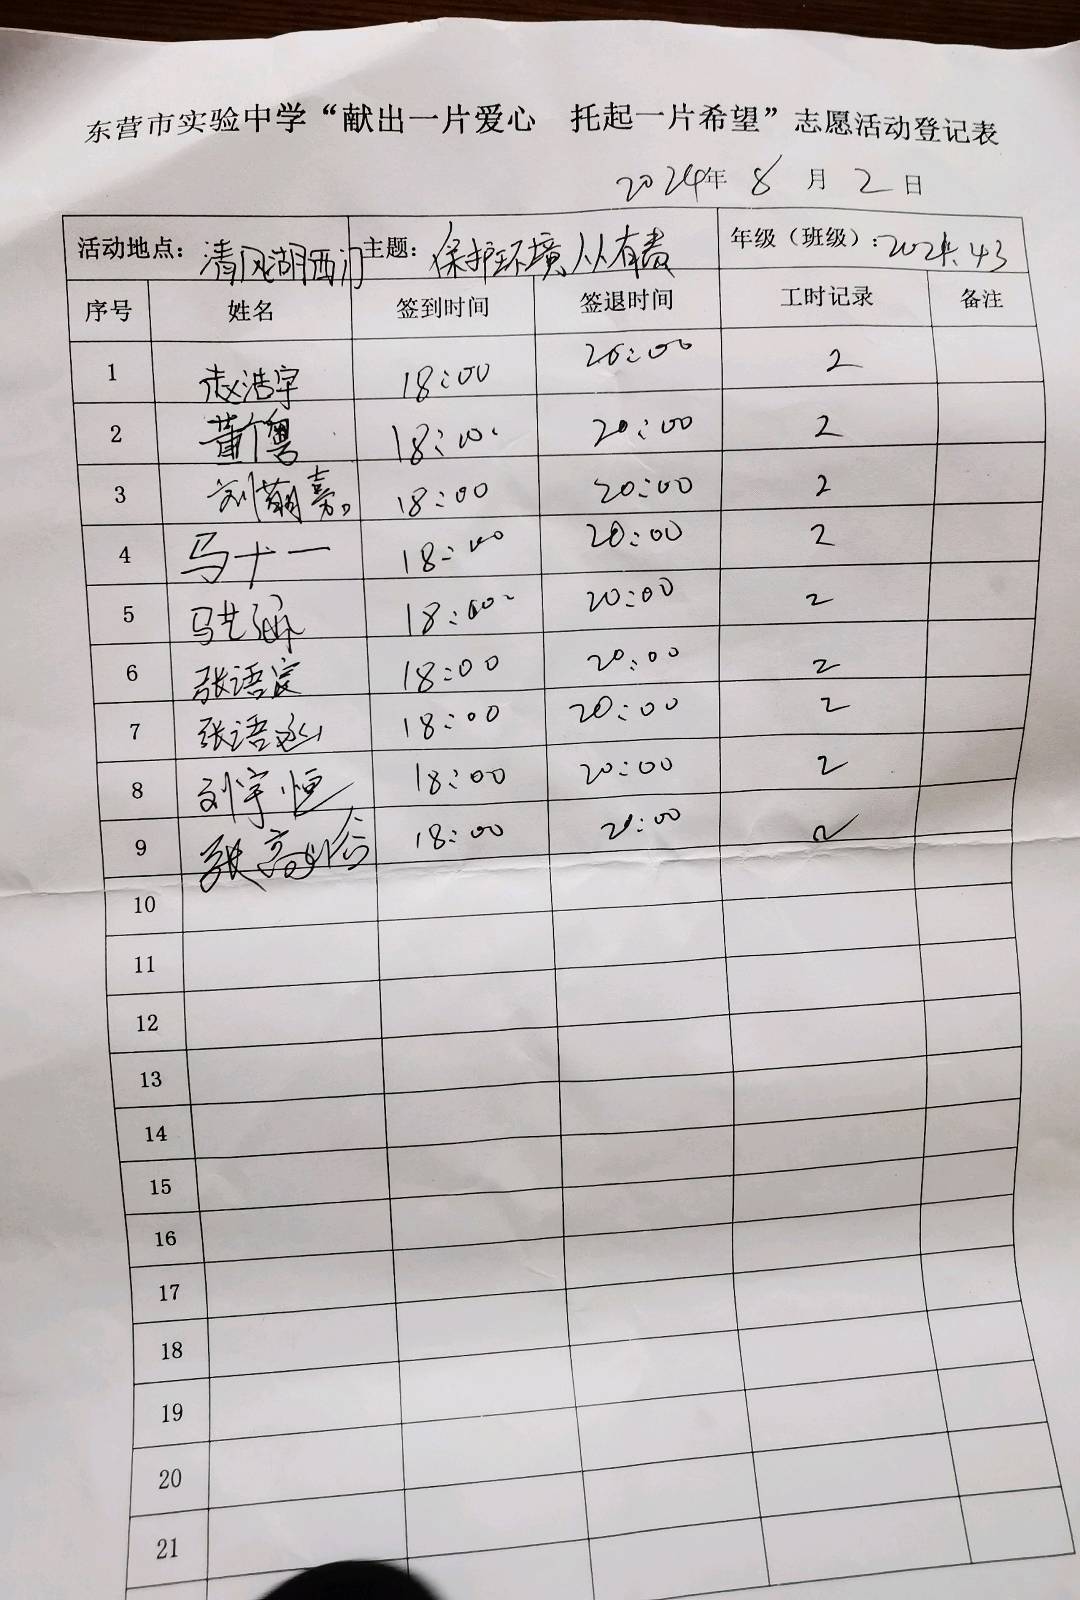 东营市实验中学“献出一片爱心 托起一片希望”志愿活动登记表
2024年 8 月 2 日
活动地点：清风湖西门 主题：保护环境人人有责 年级（班级）：2021.43
序号 姓名 签到时间 签退时间 工时记录 备注
1 赵浩宇 18:00 20:00 2
2 董 粤 18:00 20:00 2
3 刘 嘉 18:00 20:00 2
4 马十一 18:00 20:00 2
5 马艺 18:00 20:00 2
6 张语宸 18:00 20:00 2
7 张语 18:00 20:00 2
8 刘宇恒 18:00 20:00 2
9 张高 18:00 20:00 2
10
11
12
13
14
15
16
17
18
19
20
21